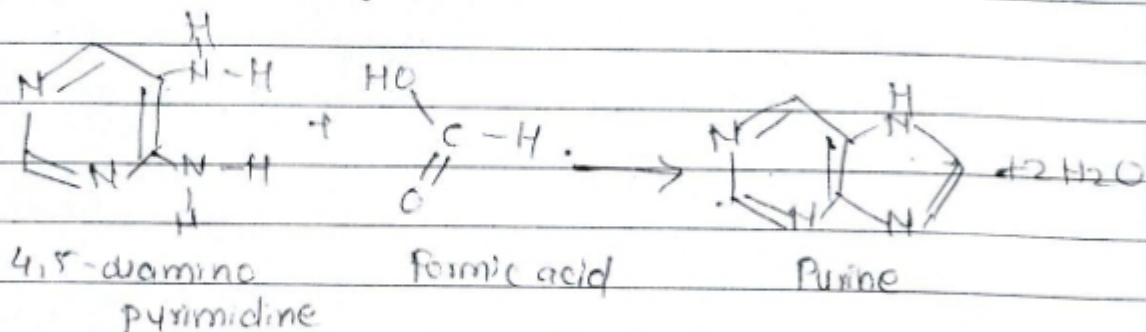 H
N - H
N
HO
+
C - H
O
N
N - H
H
H
N
N
N
N
+ 2 H2O
4,5-diamino
pyrimidine
Formic acid
Purine